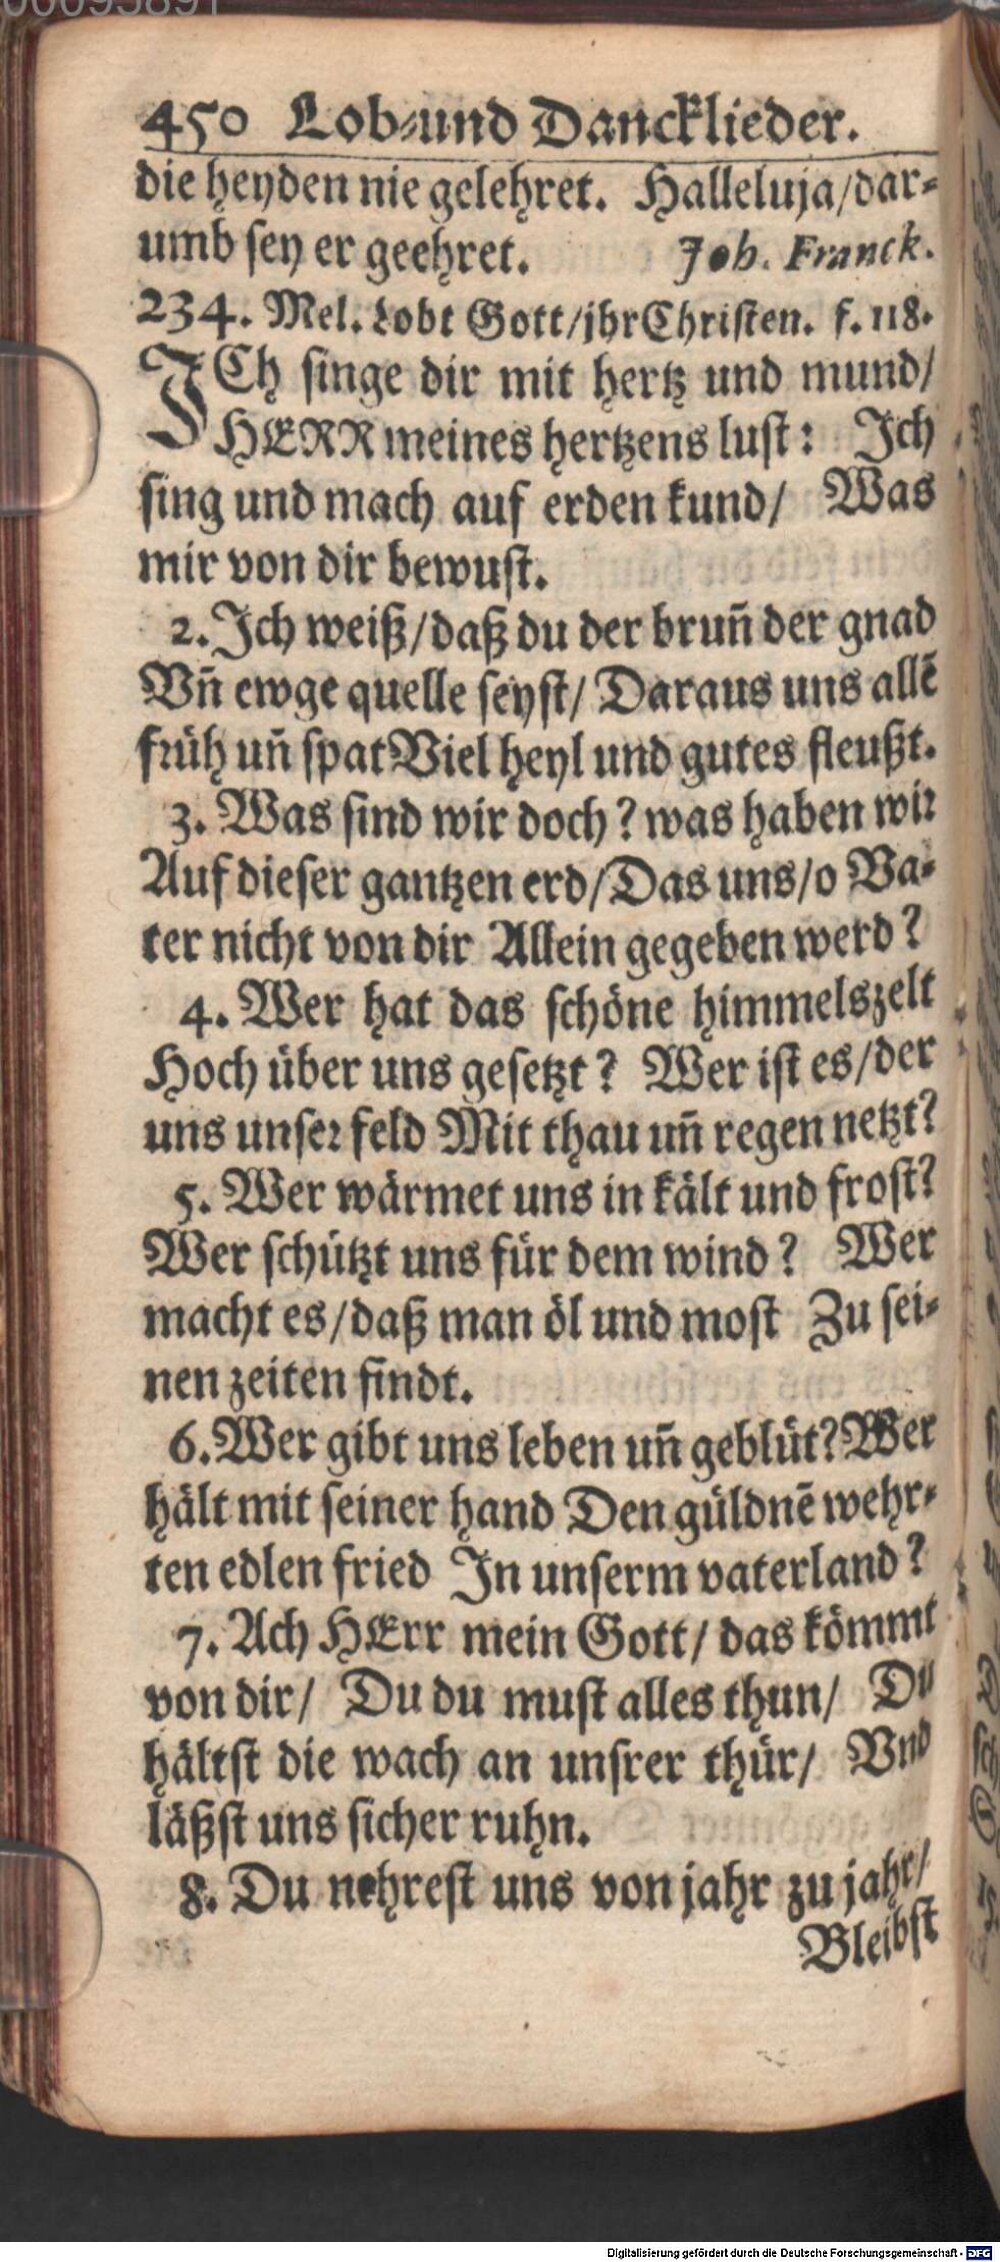 00095891
450 Lob-und Dancklieder.
die heyden nie gelehret. Halleluja/dar-
umb sey er geehret. Joh. Franck.
234. Mel. Lobt Gott/jhr Christen. f. 118.
JCh singe dir mit hertz und mund/
HERR meines hertzens lust: Jch
sing und mach auf erden kund/ Was
mir von dir bewust.
2. Jch weiß/daß du der brun̄ der gnad
Vn̄ ewge quelle seyst/ Daraus uns allē
früh un̄ spat Viel heyl und gutes fleußt.
3. Was sind wir doch? was haben wir
Auf dieser gantzen erd/Das uns/o Va-
ter nicht von dir Allein gegeben werd?
4. Wer hat das schöne himmelszelt
Hoch über uns gesetzt? Wer ist es/der
uns unser feld Mit thau un̄ regen netzt?
5. Wer wärmet uns in kält und frost?
Wer schützt uns für dem wind? Wer
macht es/daß man öl und most Zu sei-
nen zeiten findt.
6. Wer gibt uns leben un̄ geblüt? Wer
hält mit seiner hand Den güldnē wehr-
ten edlen fried Jn unserm vaterland?
7. Ach HErr mein Gott/ das kömmt
von dir/ Du du must alles thun/ Du
hältst die wach an unsrer thür/ Vnd
läßst uns sicher ruhn.
8. Du nehrest uns von jahr zu jahr/
Bleibst
Digitalisierung gefördert durch die Deutsche Forschungsgemeinschaft - DFG